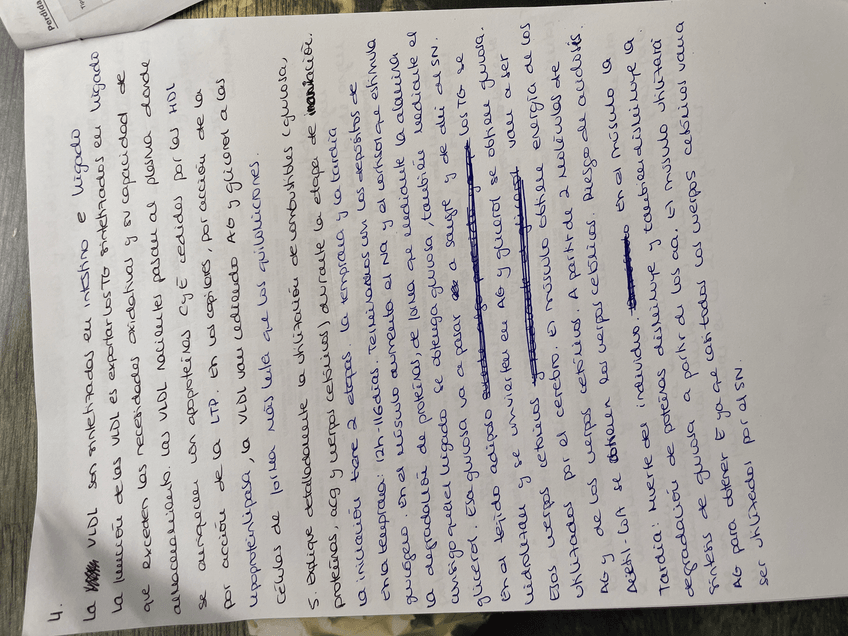 Perdida
4.
La VLDL son sintetizados en intestino e hígado
la función de las VLDL es exportar los TG sintetizados en hígado
que exceden las necesidades oxidativas y su capacidad de
almacenamiento. Las VLDL nacientes pasan al plasma donde
se enriquecen con apoproteínas C y E cedidas por las HDL
por acción de la LTP. En los capilares, por acción de la
lipoproteinlipasa, la VLDL van cediendo AG y glicerol a las
células de forma más lenta que los quilomicrones.
5. Explique detalladamente la utilización de combustibles (glucosa,
proteínas, acg y cuerpos cetónicos) durante la etapa de inanición.
La inanición tiene 2 etapas. La temprana y la tardía
En la temprana: 12h-16 días. Terminamos con los depósitos de
glucógeno. En el músculo aumenta el NA y el cortisol que estimula
la degradación de proteínas, de forma que mediante la alanina
consigo que el hígado se obtenga glucosa, también mediante el
glicerol. Esa glucosa va a pasar a sangre y de ahí al SN.
En el tejido adiposo los TG se
hidrolizan y se convierten en AG y glicerol se obtiene glucosa.
Esos cuerpos cetónicos van a ser
utilizados por el cerebro. El músculo obtiene energía de los
AG y de los cuerpos cetónicos. A partir de 2 moléculas de
Acetil-CoA se obtienen los cuerpos cetónicos. Riesgo de acidosis.
Tardía: Muerte del individuo. En el músculo la
degradación de proteínas disminuye y también disminuye la
síntesis de glucosa a partir de los aa. El músculo utilizará
AG para obtener E ya que casi todos los cuerpos cetónicos van a
ser utilizados por el SN.